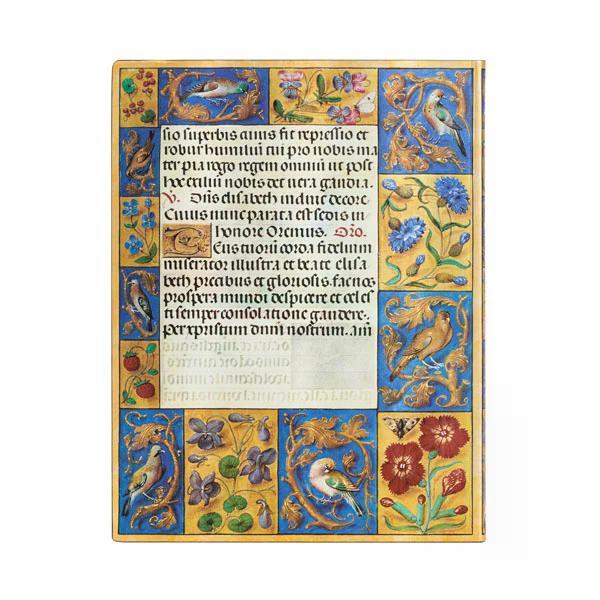 sio superbis cuius fit repressio et
robur humiliū cui pro nobis ma
ter pia rogo regem omniū ut post
hoc exiliū nobis det vera gaudia.
V. Dn̄s elisabeth induit decore
Cuius nunc parata est sedis in
honore Oremus. Orō.
Deus tuorū corda fidelium
miserator illustra et beate elisa
beth precibus et gloriosis. fac nos
prospera mundi despicere et celes
ti semper consolatione gaudere.
Per xpristum dnm̄ nostrum. am̄